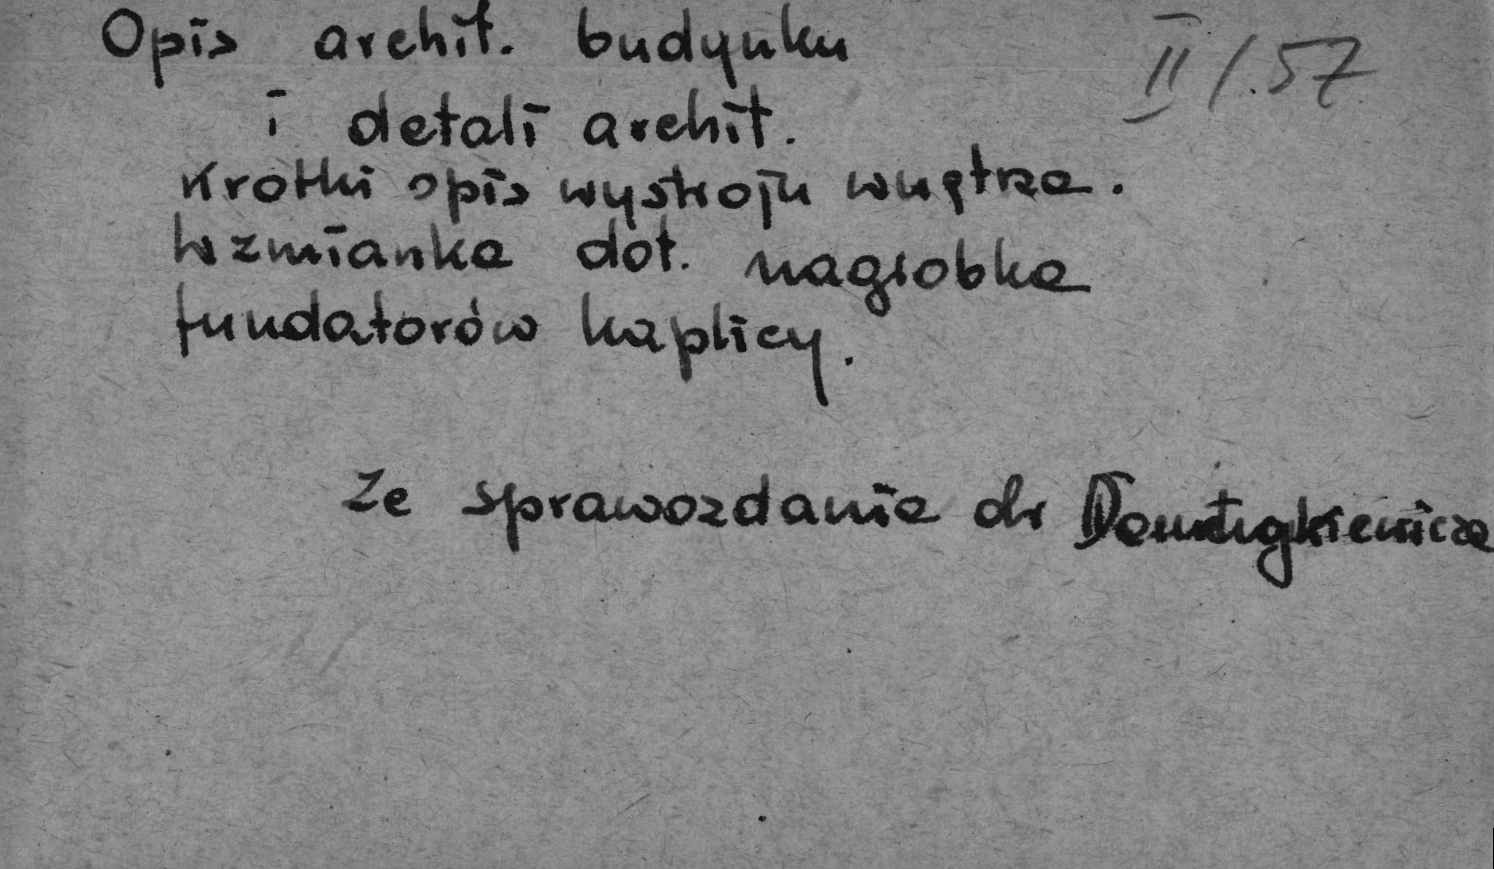 Opis archit. budynku
II/.57
i detali archit.
Krotki opis wystroju wnętrza.
Wzmianka dot. nagrobka
fundatorów kaplicy.
Ze sprawozdania dr